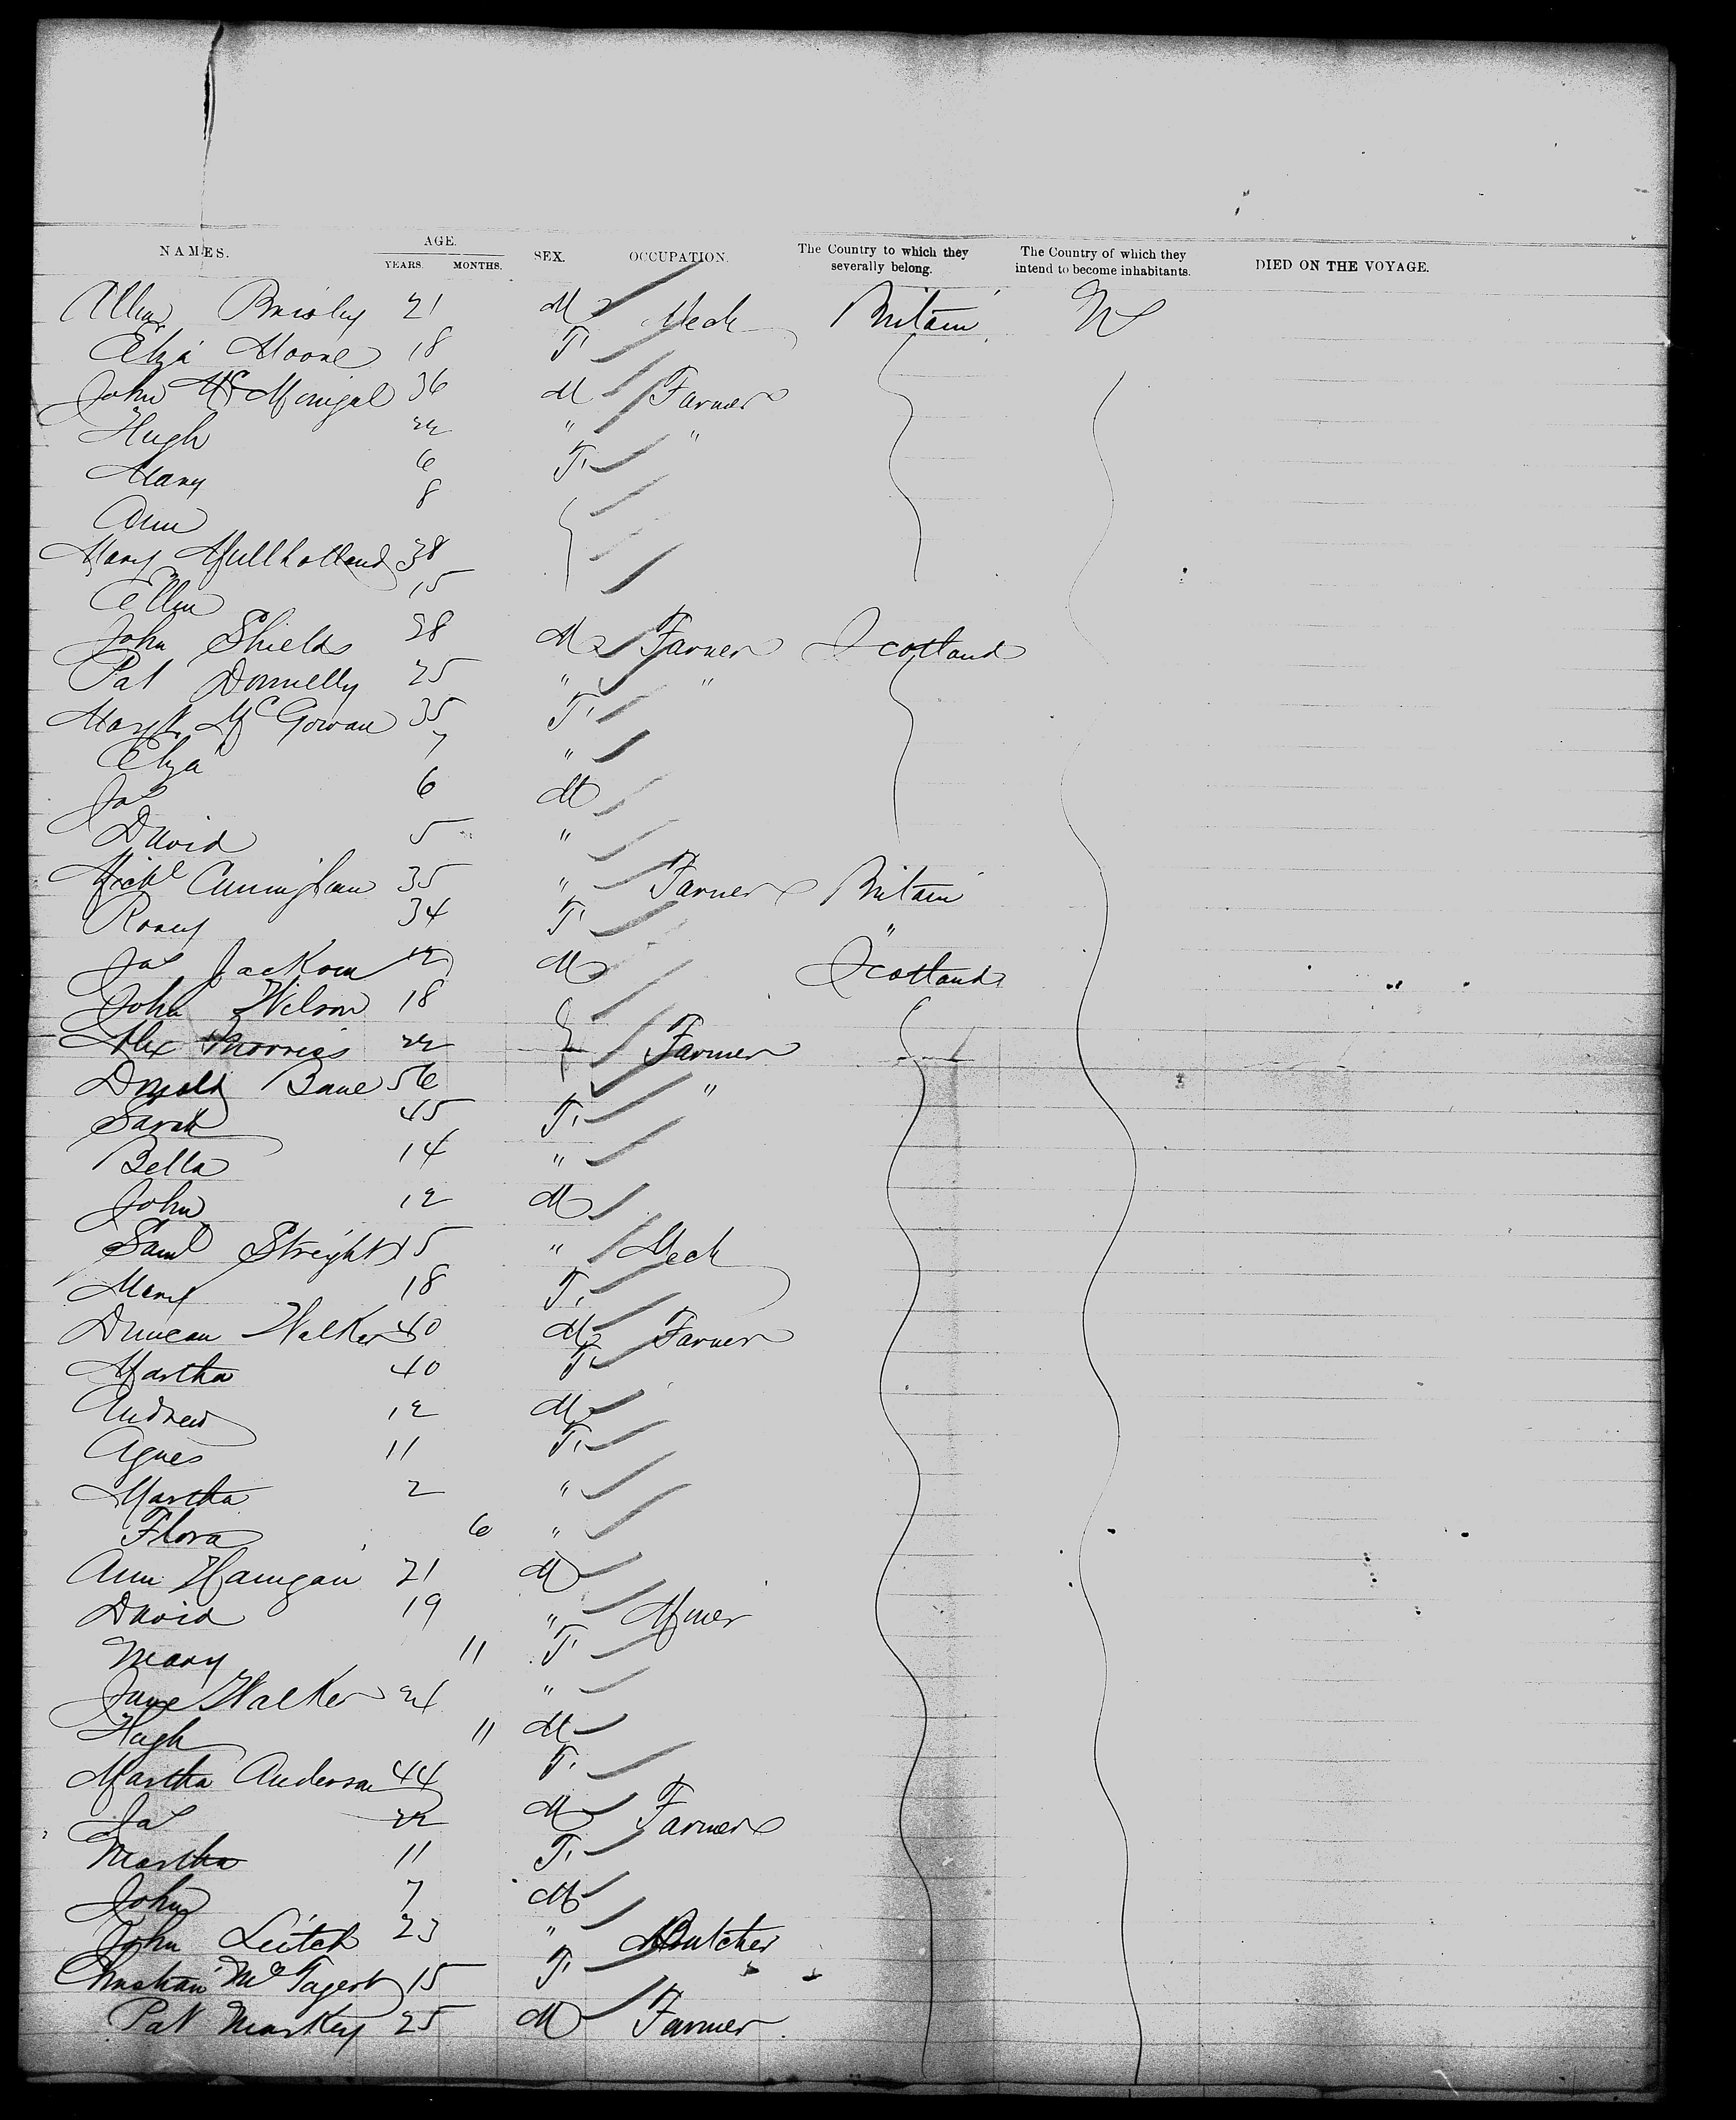 NAMES. AGE. SEX. OCCUPATION. The Country to which they severally belong. The Country of which they intend to become inhabitants. DIED ON THE VOYAGE.
YEARS. MONTHS.
21 M Mech Britain
Eliza Moore 18 F
John McMonigal 36 M Farmer
Hugh 22 " "
Mary 6 F
Ann 8
Mary Mullholland 38
Ellen 15
John Shields 28 M Farmer Scotland
Pat Donnelly 25 " "
Margt McGowan 35 F
Eliza 7 "
Jas 6 M
David 5 "
Michl Cuningham 35 " Farmer Britain
Rosey 34 F "
Jas Jackson 12 M Scotland
John Wilson 18
Alex 22 Farmer
Donald Bane 56 "
Sarah 45 F
Bella 14 "
John 12 M
Saml Streight 15 " Mech
Mary 18 F
Duncan Walker 40 M Farmer
Martha 40 F
Andrew 12 M
Agnes 11 F
Martha 2 "
Flora 6 "
Ann Hanigan 21 M
David 19 " Miner
Mary 11 F
Jane Walker 24 "
Hugh 11 M
Martha Anderson 44 F
Jas 22 M Farmer
Martha 11 F
John 7 M
John Leitch 23 " Butcher
Christian McTagert 15 F
Pat Markey 25 M Farmer